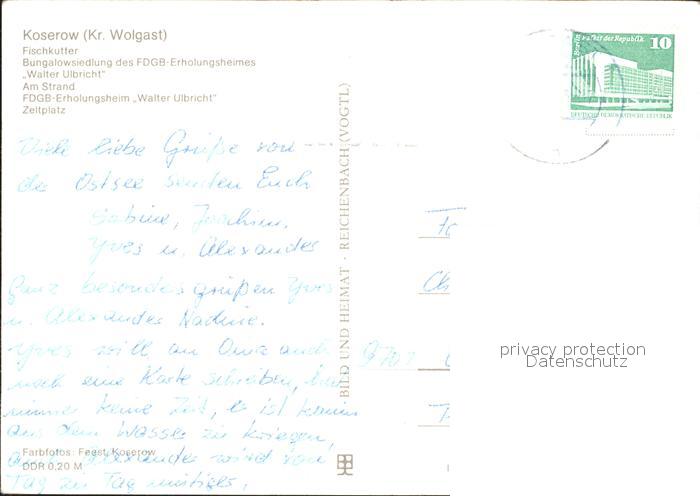 Koserow (Kr. Wolgast)
Fischkutter
Bungalowsiedlung des FDGB-Erholungsheimes
„Walter Ulbricht“
Am Strand
FDGB-Erholungsheim „Walter Ulbricht“
Zeltplatz
Viele liebe Grüße von
der Ostsee senden Euch
Sabine, Joachim,
Yves u. Alexander
Ganz besonders grüßen Yves
u. Alexander Nadine.
Yves will an Oma auch
noch eine Karte schreiben, hat
immer keine Zeit, er ist kaum
aus dem Wasser zu kriegen,
auch Alexander wird von
Tag zu Tag mutiger.
Farbfotos: Feest, Koserow
DDR 0,20 M
BILD UND HEIMAT · REICHENBACH (VOGTL)
10
Berlin Palast der Republik
DEUTSCHE DEMOKRATISCHE REPUBLIK
Fa
Ch
privacy protection
Datenschutz